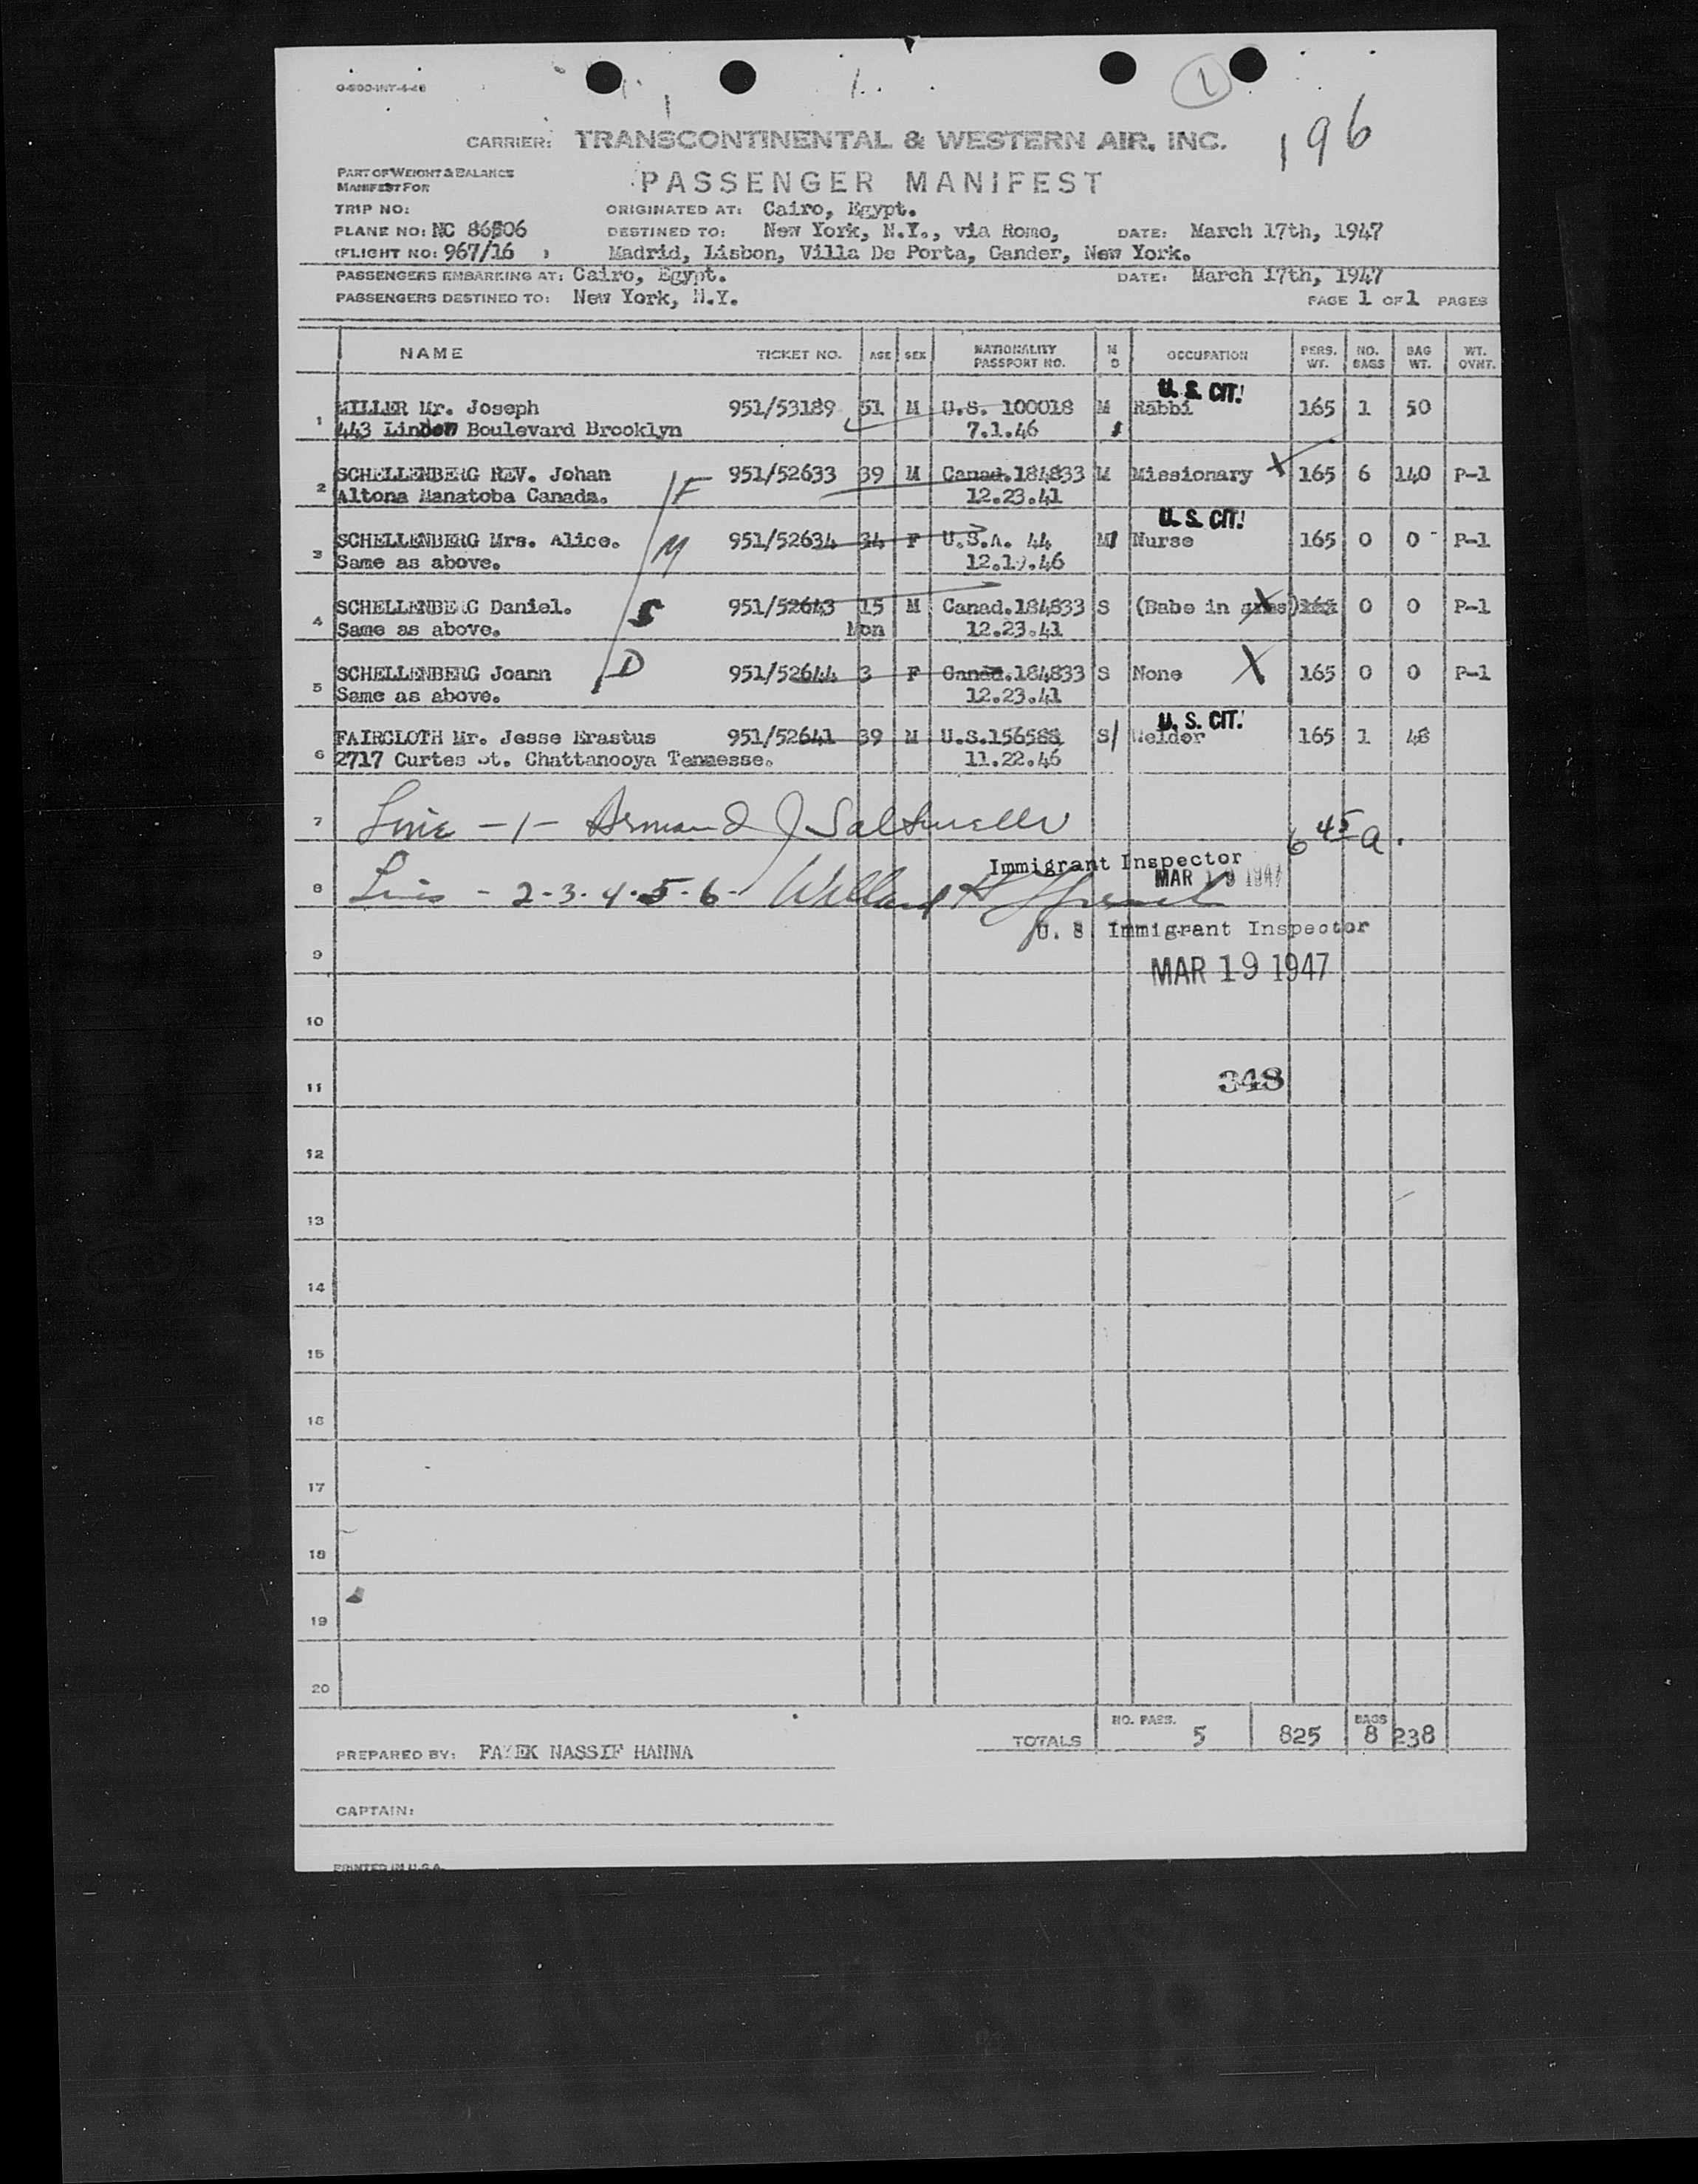 0-500-INT-4-46
1
CARRIER: TRANSCONTINENTAL & WESTERN AIR, INC. 196
PART OF WEIGHT & BALANCE
MANIFEST FOR
PASSENGER MANIFEST
TRIP NO: ORIGINATED AT: Cairo, Egypt.
PLANE NO: NC 86506 DESTINED TO: New York, N.Y., via Rome, DATE: March 17th, 1947
(FLIGHT NO: 967/16 ) Madrid, Lisbon, Villa De Porta, Gander, New York.
PASSENGERS EMBARKING AT: Cairo, Egypt. DATE: March 17th, 1947
PASSENGERS DESTINED TO: New York, N.Y. PAGE 1 OF 1 PAGES
NAME TICKET NO. AGE SEX NATIONALITY PASSPORT NO. M S OCCUPATION PERS. WT. NO. BAGS BAG WT. WT. OVNT.
U. S. CIT.
1 MILLER Mr. Joseph 951/53189 51 M U.S. 100018 M Rabbi 165 1 50
443 Linden Boulevard Brooklyn 7.1.46
2 SCHELLENBERG REV. Johan F 951/52633 39 M Canad.184833 M Missionary X 165 6 140 P-1
Altona Manatoba Canada. 12.23.41
U. S. CIT.
3 SCHELLENBERG Mrs. Alice. M 951/52634 34 F U.S.A. 44 M Nurse 165 0 0 P-1
Same as above. 12.19.46
4 SCHELLENBERG Daniel. S 951/52643 15 M Canad.184833 S (Babe in arms) X 0 0 P-1
Same as above. Mon 12.23.41
5 SCHELLENBERG Joann D 951/52644 3 F Canad.184833 S None X 165 0 0 P-1
Same as above. 12.23.41
U. S. CIT.
6 FAIRCLOTH Mr. Jesse Erastus 951/52641 39 M U.S.156588 S Welder 165 1 48
2717 Curtes St. Chattanooya Tennesse. 11.22.46
7 Line - 1 - Armand J 6 45 a.
Immigrant Inspector
MAR 19 1947
8 Lines - 2-3-4-5-6- Willard H
U. S. Immigrant Inspector
9
MAR 19 1947
10
11 348
12
13
14
15
16
17
18
19
20
TOTALS NO. PASS. 5 825 BAGS 8 238
PREPARED BY: FAYEK NASSIF HANNA
CAPTAIN:
PRINTED IN U.S.A.